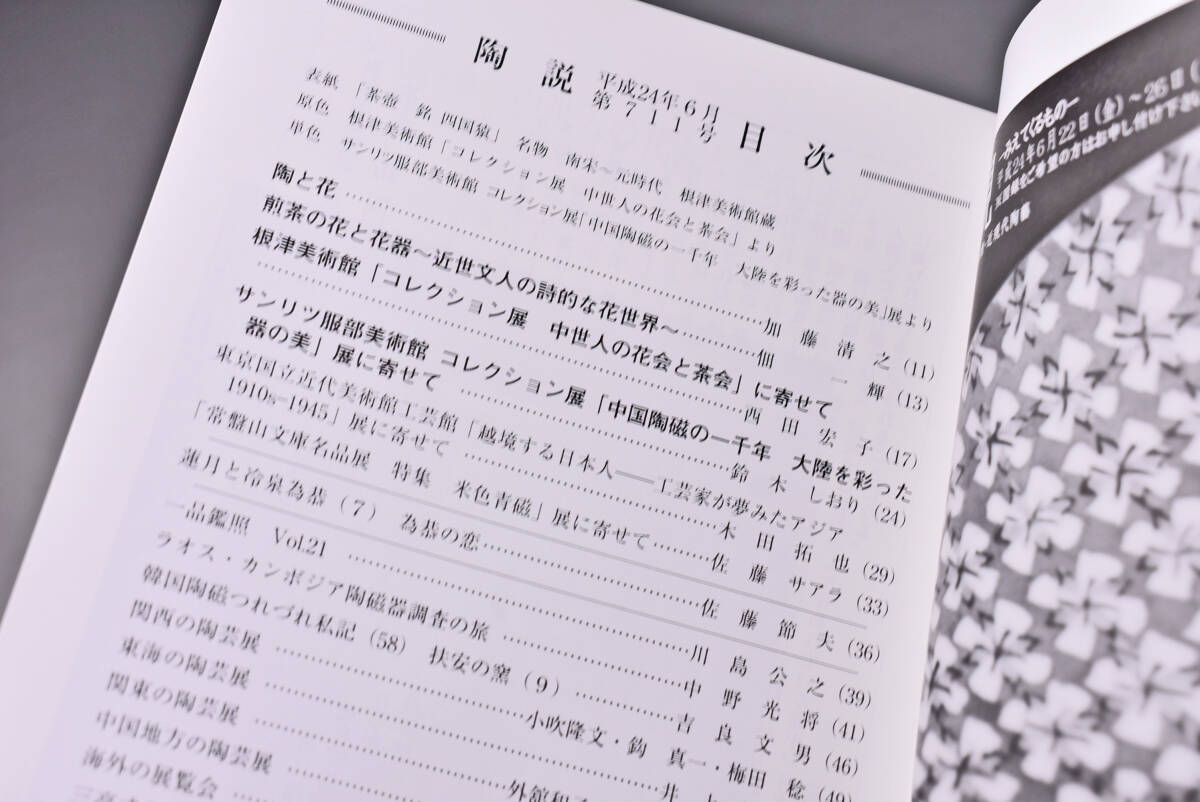 陶説 平成24年6月 第711号 目次
表紙 「茶壺 銘 四国猿」 名物 南宋〜元時代 根津美術館蔵
原色 根津美術館「コレクション展 中世人の花会と茶会」より
単色 サンリツ服部美術館 コレクション展「中国陶磁の一千年 大陸を彩った器の美」展より
陶と花……………加藤清之(11)
煎茶の花と花器〜近世文人の詩的な花世界〜……………佃一輝(13)
根津美術館「コレクション展 中世人の花会と茶会」に寄せて
……………西田宏子(17)
サンリツ服部美術館 コレクション展「中国陶磁の一千年 大陸を彩った
器の美」展に寄せて……………鈴木しおり(24)
東京国立近代美術館工芸館「越境する日本人――工芸家が夢みたアジア
1910s-1945」展に寄せて……………木田拓也(29)
「常盤山文庫名品展 特集 米色青磁」展に寄せて……………佐藤サアラ(33)
蓮月と冷泉為恭(7) 為恭の恋……………佐藤節夫(36)
一品鑑照 Vol.21……………川島公之(39)
ラオス・カンボジア陶磁器調査の旅……………中野光将(41)
韓国陶磁つれづれ私記(58) 扶安の窯(9)……………吉良文男(46)
関西の陶芸展……………小吹隆文・鈎 真一・梅田 稔(49)
東海の陶芸展……………井上
関東の陶芸展……………外舘和子
中国地方の陶芸展
海外の展覧会
―みえてくるもの―
平成24年6月22日(金)〜26日(